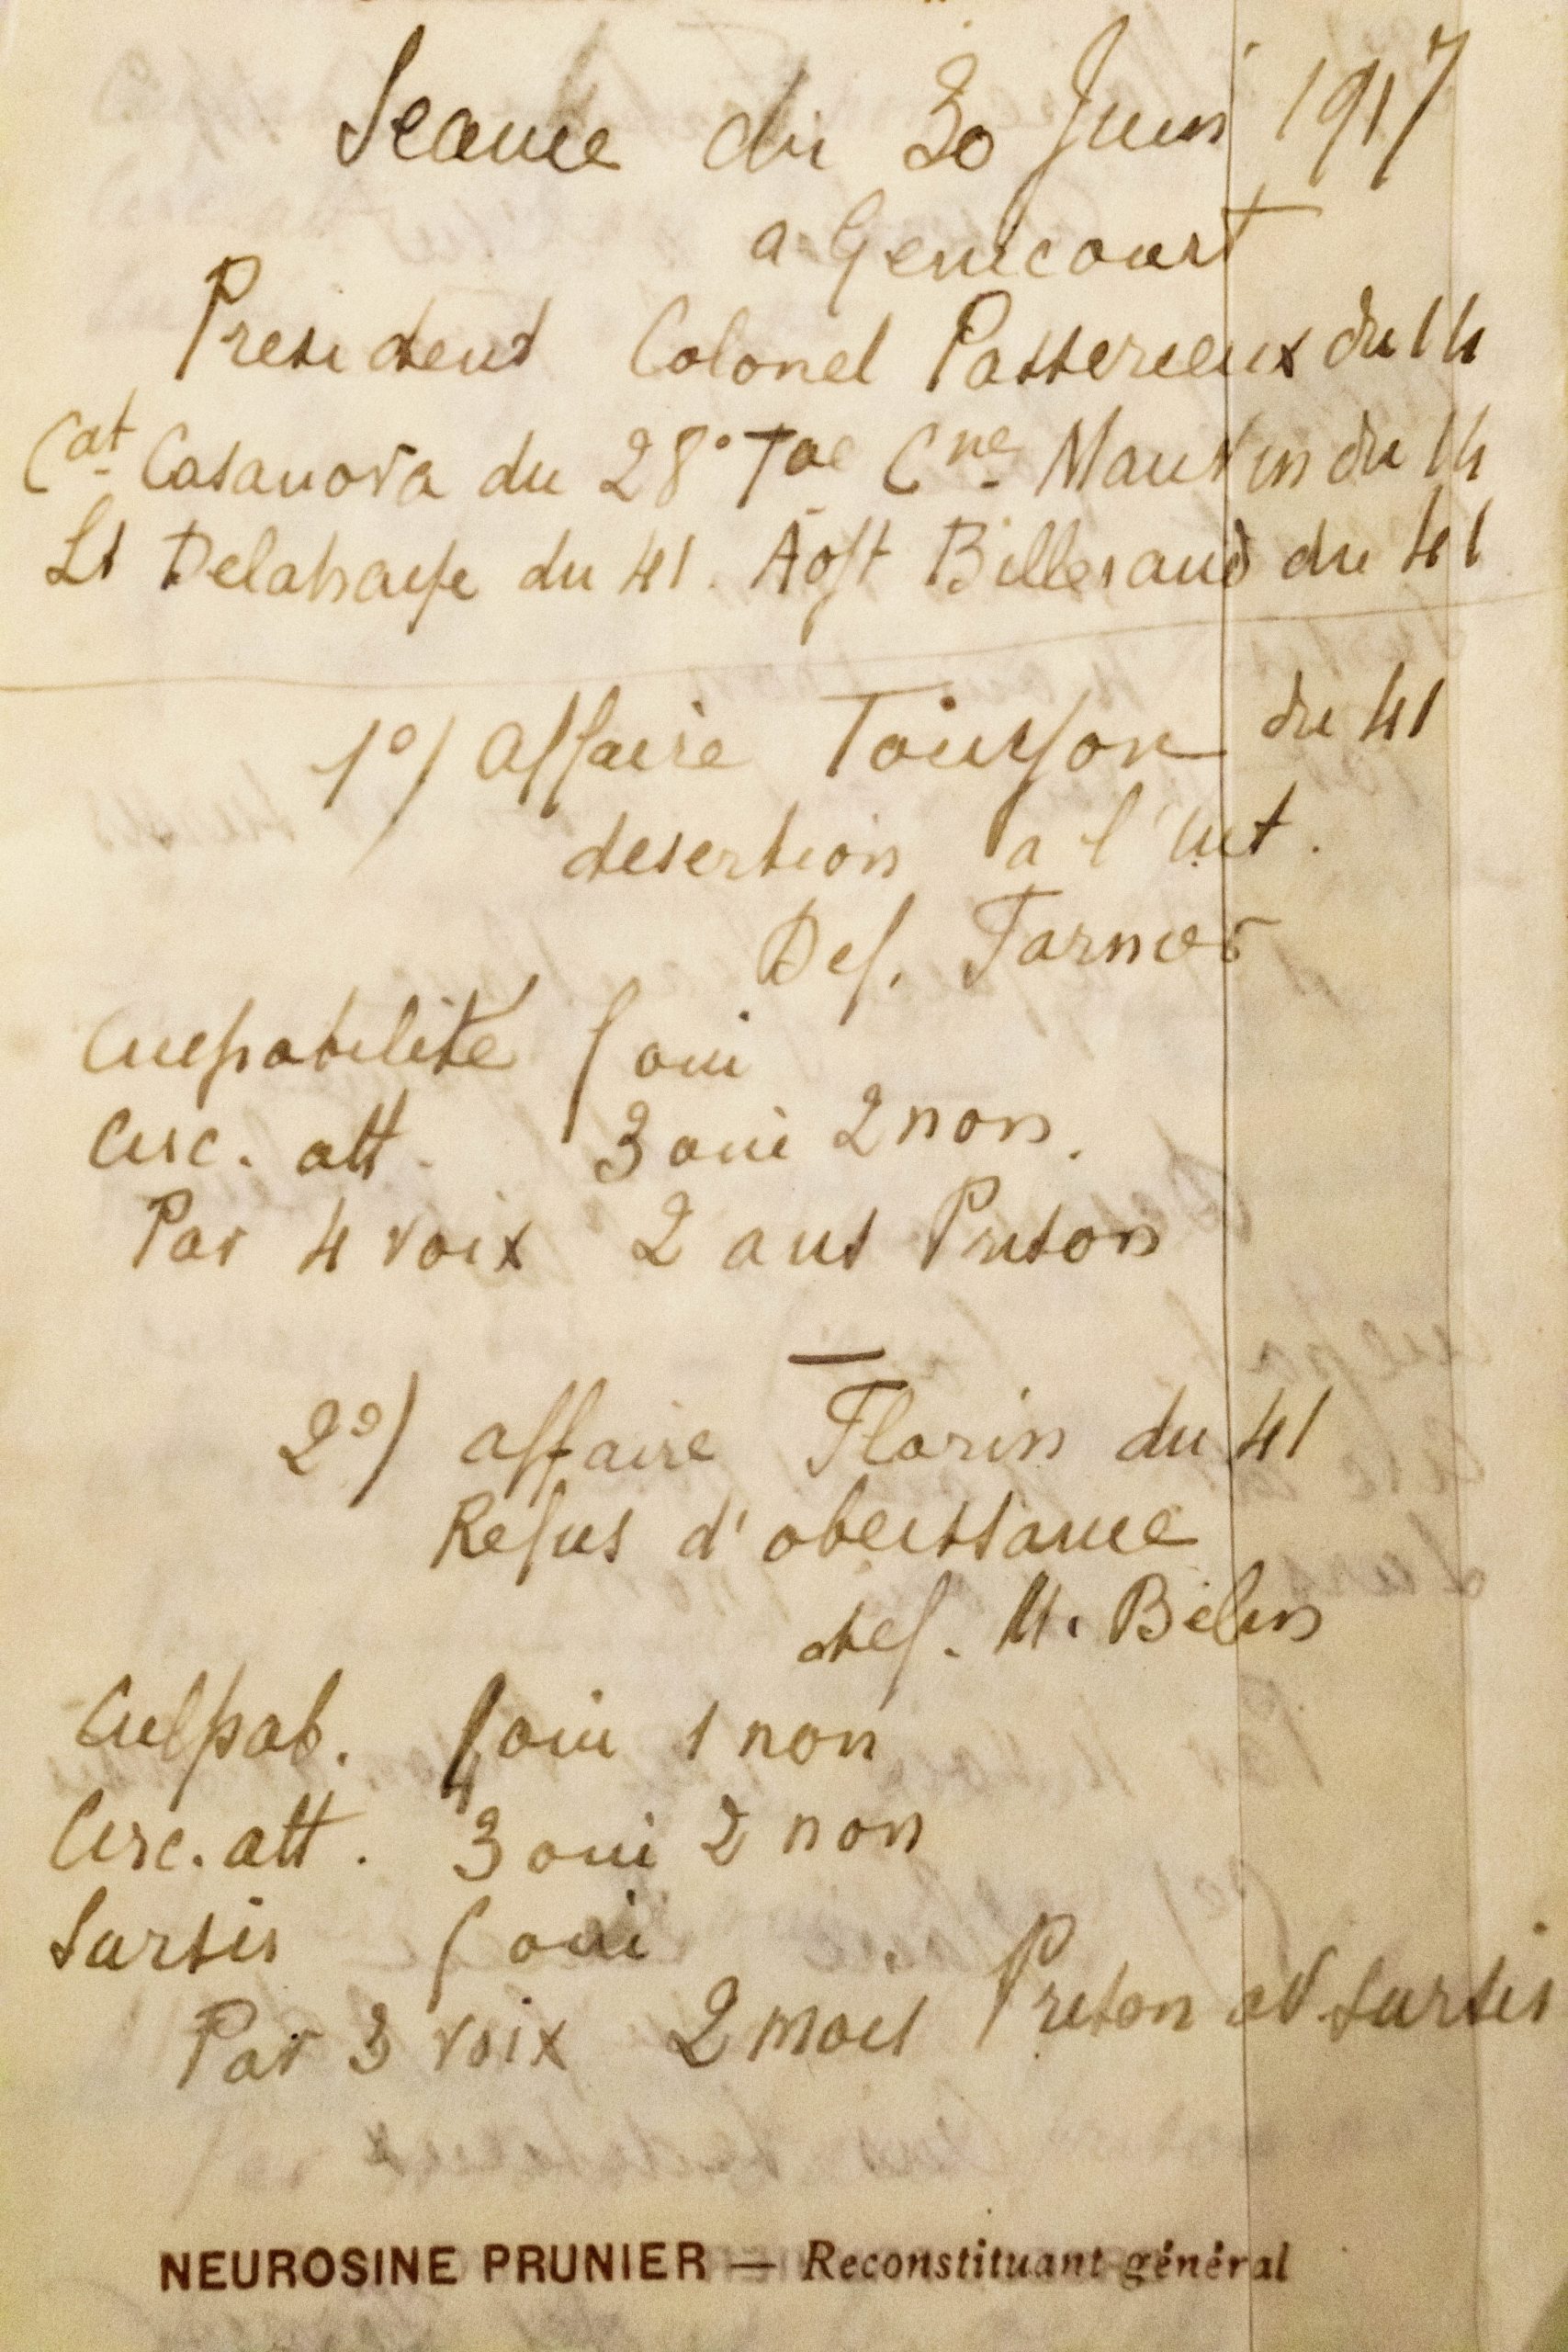 Seance du 30 Juin 1917
a Genicourt
President Colonel Passerieux du 14
Cat Casanova du 28° Tal Cne Mautin du 14
Lt Delahaye du 41. Adjt Billeraud du 41
1°) affaire Tourson du 41
desertion a l'int.
Def. Tarnier
Culpabilité 5 oui
Circ. att. 3 oui 2 non.
Par 4 voix 2 ans Prison
2°) affaire Florin du 41
Refus d'obeissance
def. M. Belin
Culpab. 4 oui 1 non
Circ. att. 3 oui 2 non
Sursis 5 oui
Par 3 voix 2 mois Prison av sursis
NEUROSINE PRUNIER — Reconstituant général